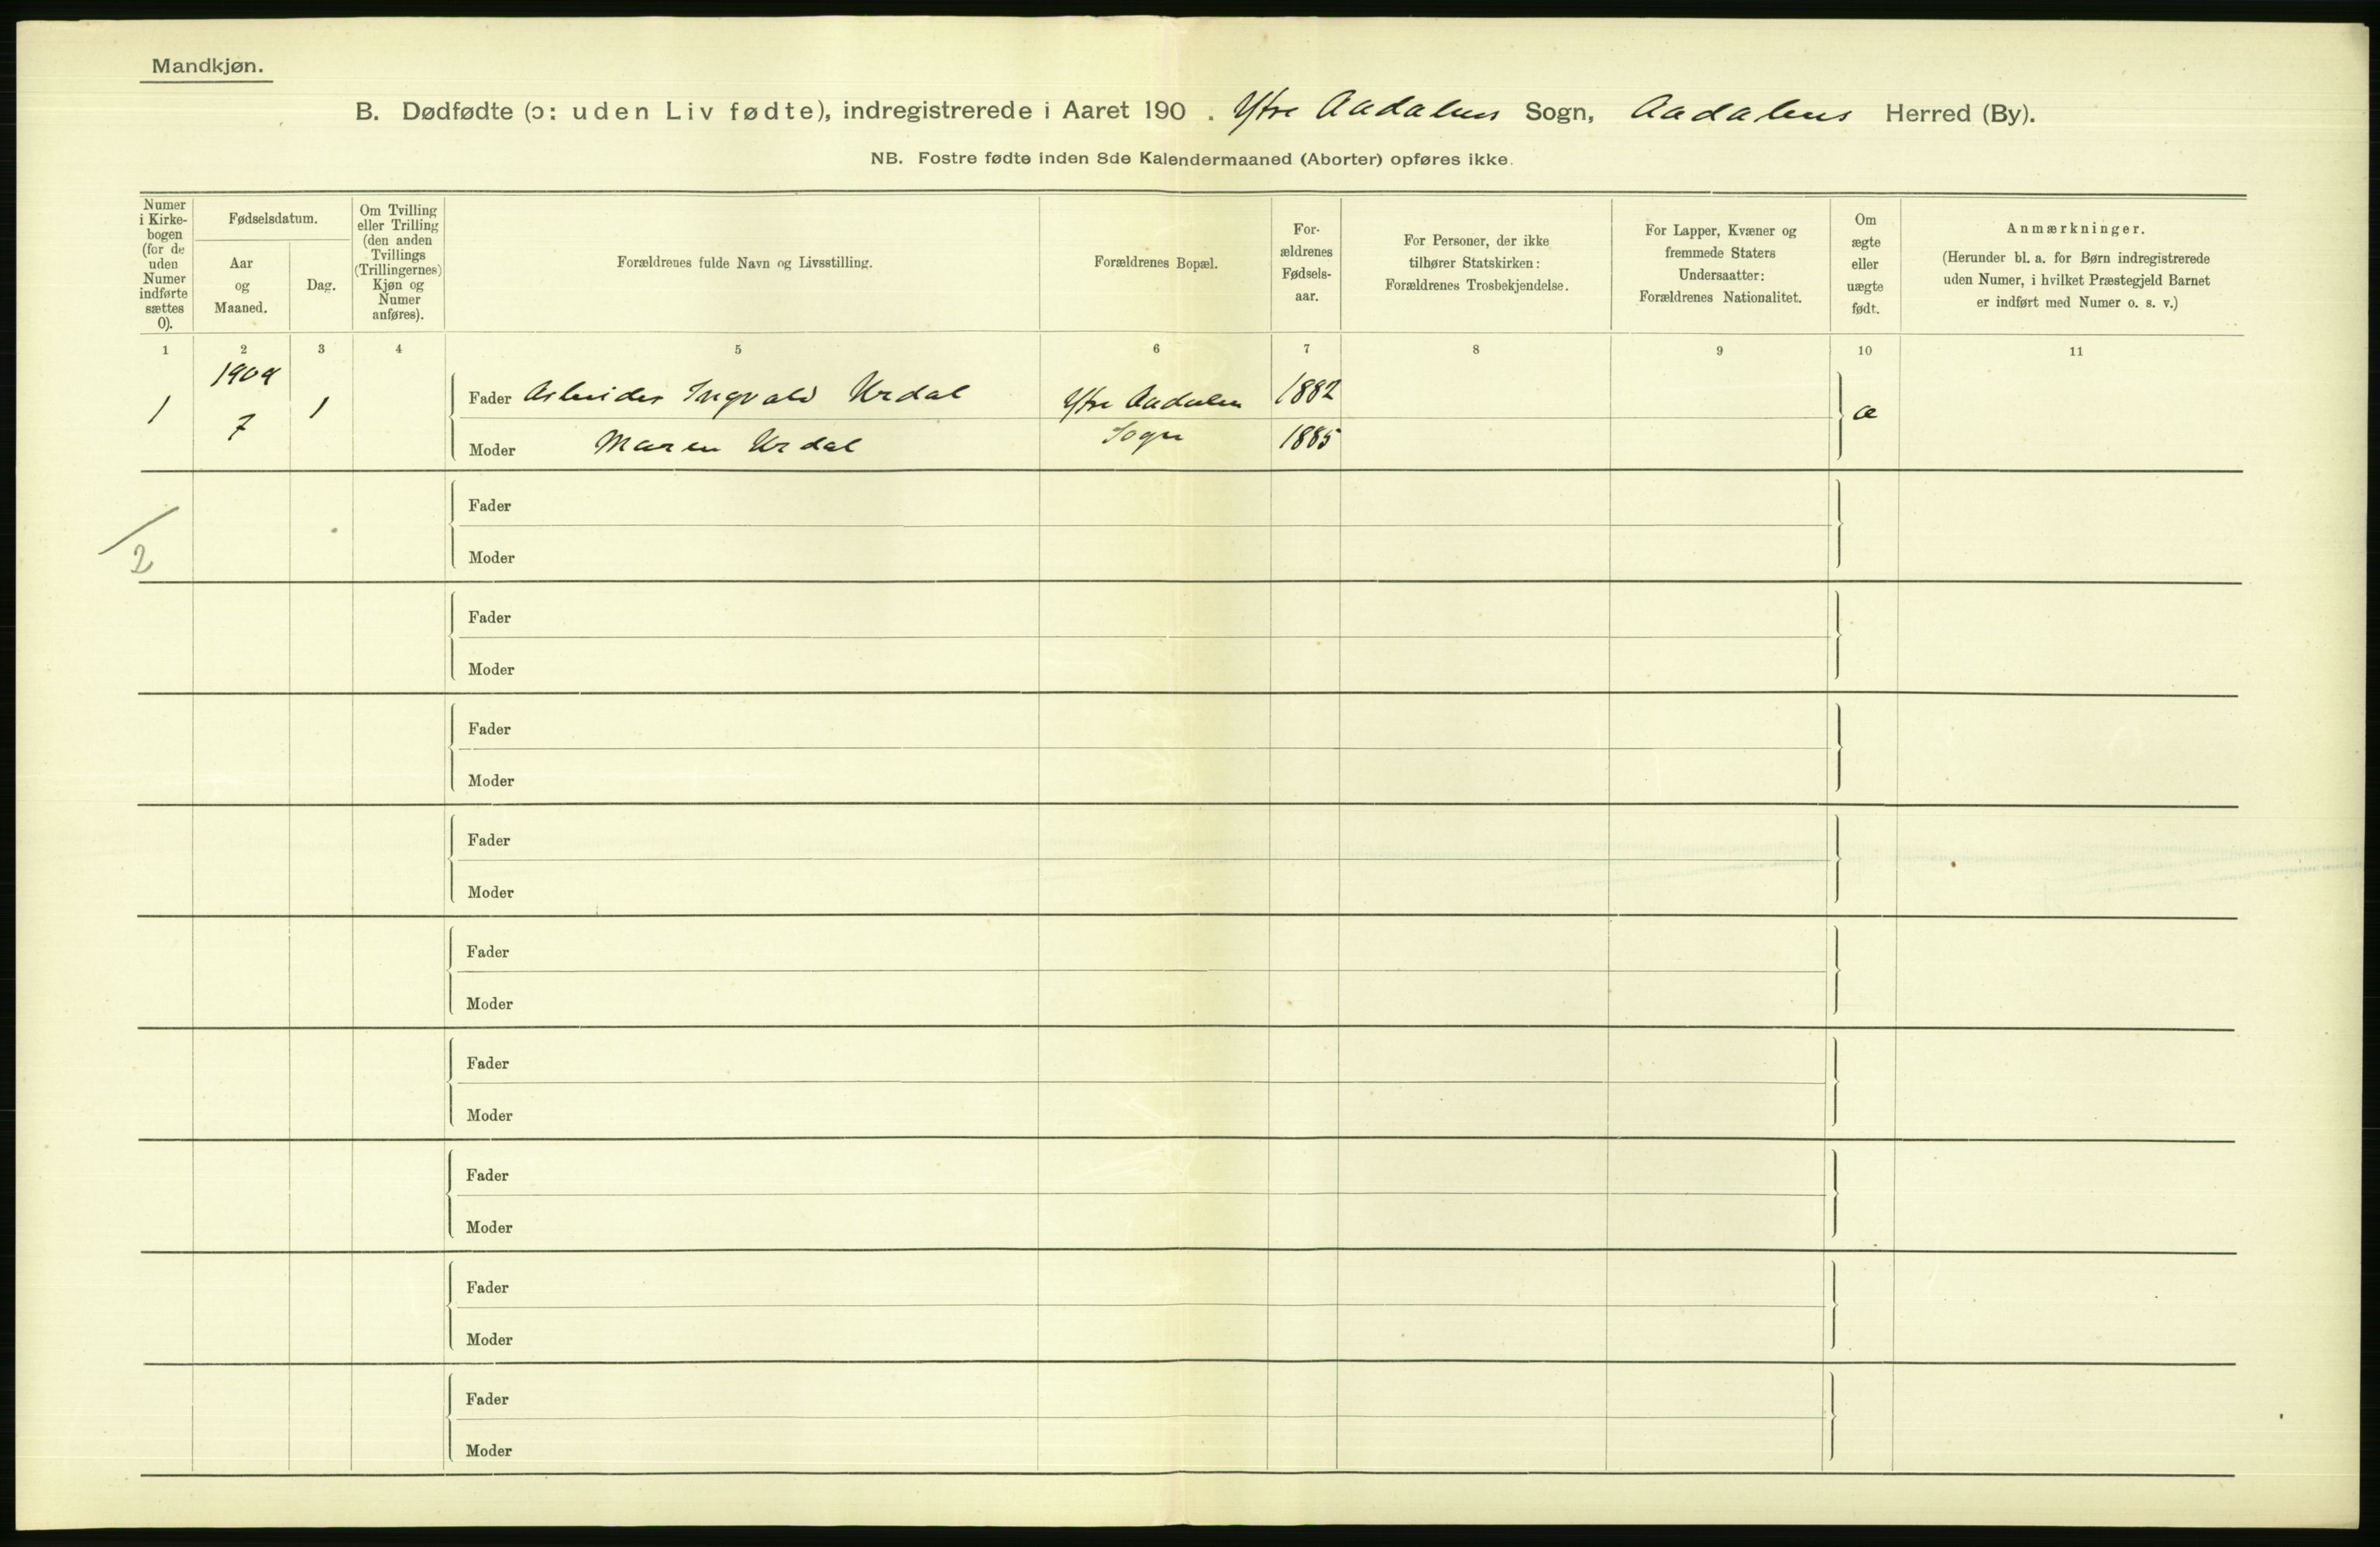 Mandkjøn.
B. Dødfødte (ɔ: uden Liv fødte), indregistrerede i Aaret 190 . Ytre Aadalens Sogn, Aadalens Herred (By).
NB. Fostre fødte inden 8de Kalendermaaned (Aborter) opføres ikke.
Numer
i Kirke-
bogen
(for de
uden
Numer
indførte
sættes
0).
Fødselsdatum.
Aar
og
Maaned.
Dag.
Om Tvilling
eller Trilling
(den anden
Tvillings
(Trillingernes)
Kjøn og
Numer
anføres).
Forældrenes fulde Navn og Livsstilling.
Forældrenes Bopæl.
For-
ældrenes
Fødsels-
aar.
For Personer, der ikke
tilhører Statskirken:
Forældrenes Trosbekjendelse.
For Lapper, Kvæner og
fremmede Staters
Undersaatter:
Forældrenes Nationalitet.
Om
ægte
eller
uægte
født.
Anmærkninger.
(Herunder bl. a. for Børn indregistrerede
uden Numer, i hvilket Præstegjeld Barnet
er indført med Numer o. s. v.)
1 2 3 4 5 6 7 8 9 10 11
1909
1 7 1
Fader Arbeider Ingvald Urdal Ytre Aadalen 1882 æ
Moder Maren Urdal Sogn 1885
Fader
2
Moder
Fader
Moder
Fader
Moder
Fader
Moder
Fader
Moder
Fader
Moder
Fader
Moder
Fader
Moder
Fader
Moder